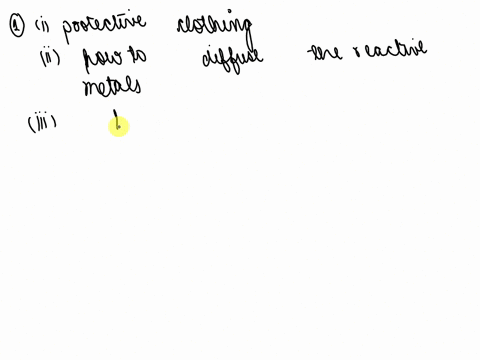 ① (i) protective clothing
(ii) how to diffuse the reactive
metals
(iii)